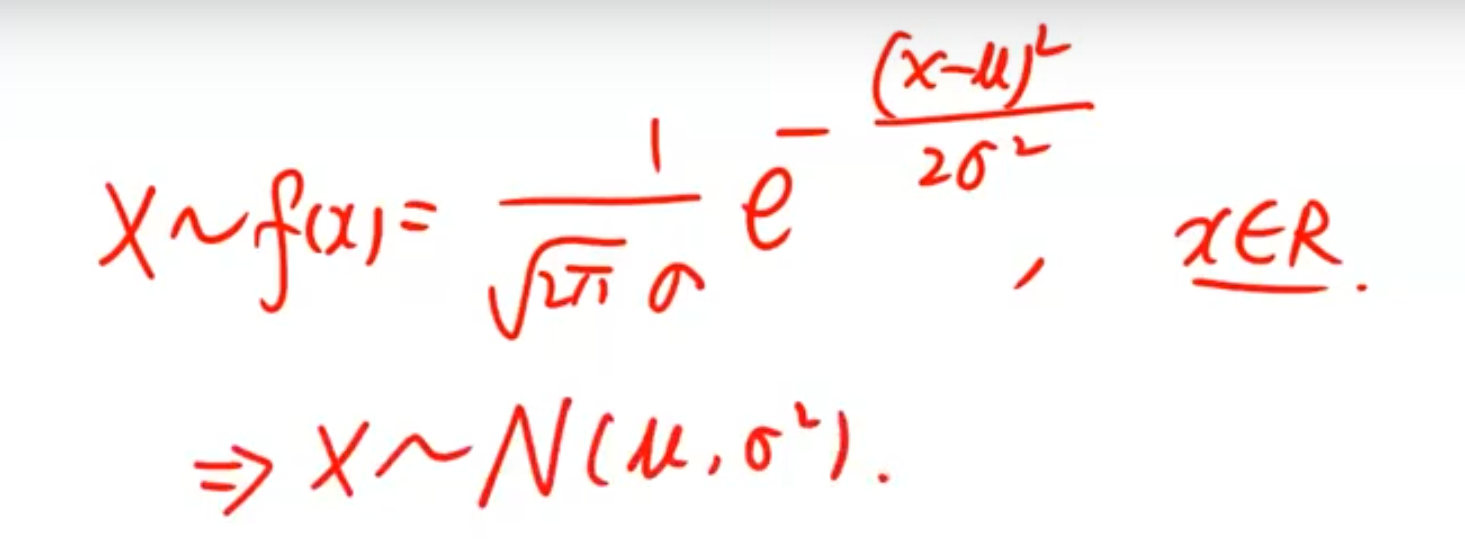 X~f(x)= \frac{1}{\sqrt{2π} σ} e^{-\frac{(x-μ)^2}{2σ^2}}, x∈R.
⇒ X~N(μ,σ^2).